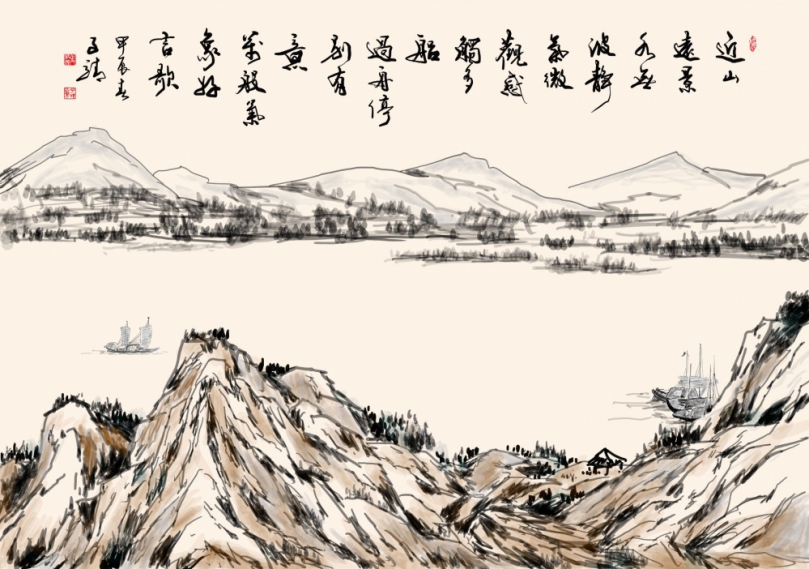 近山
遠景
水無
波靜
氣微
觀感
觸多
船
過舟停
別有
意
萬般氣
象好
言歌
甲辰春